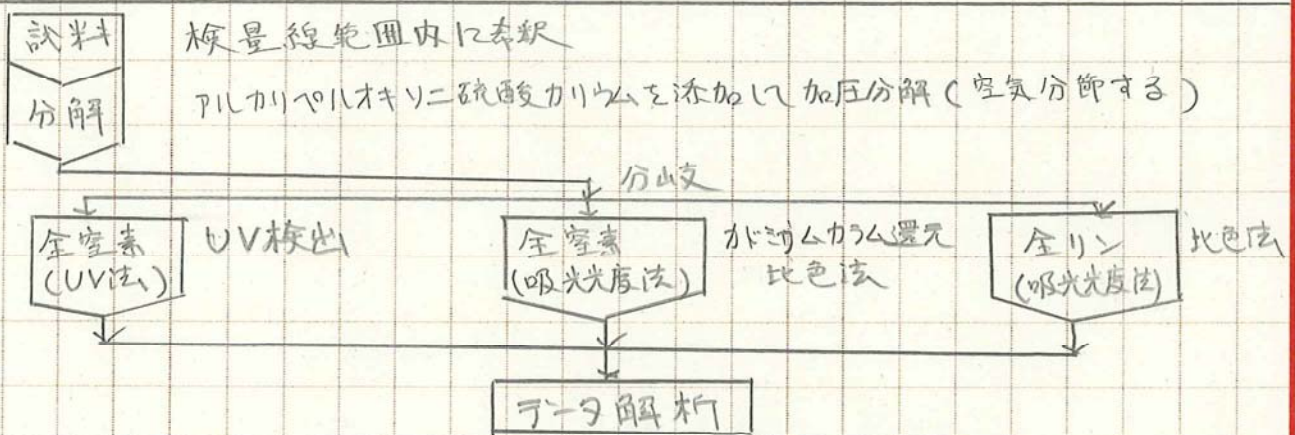 試料
検量線範囲内に希釈
分解
アルカリペルオキソ二硫酸カリウムを添加して加圧分解(空気分節する)
分岐
全窒素
(UV法)
UV検出
全窒素
(吸光光度法)
カドミウムカラム還元
比色法
全リン
(吸光光度法)
比色法
データ解析